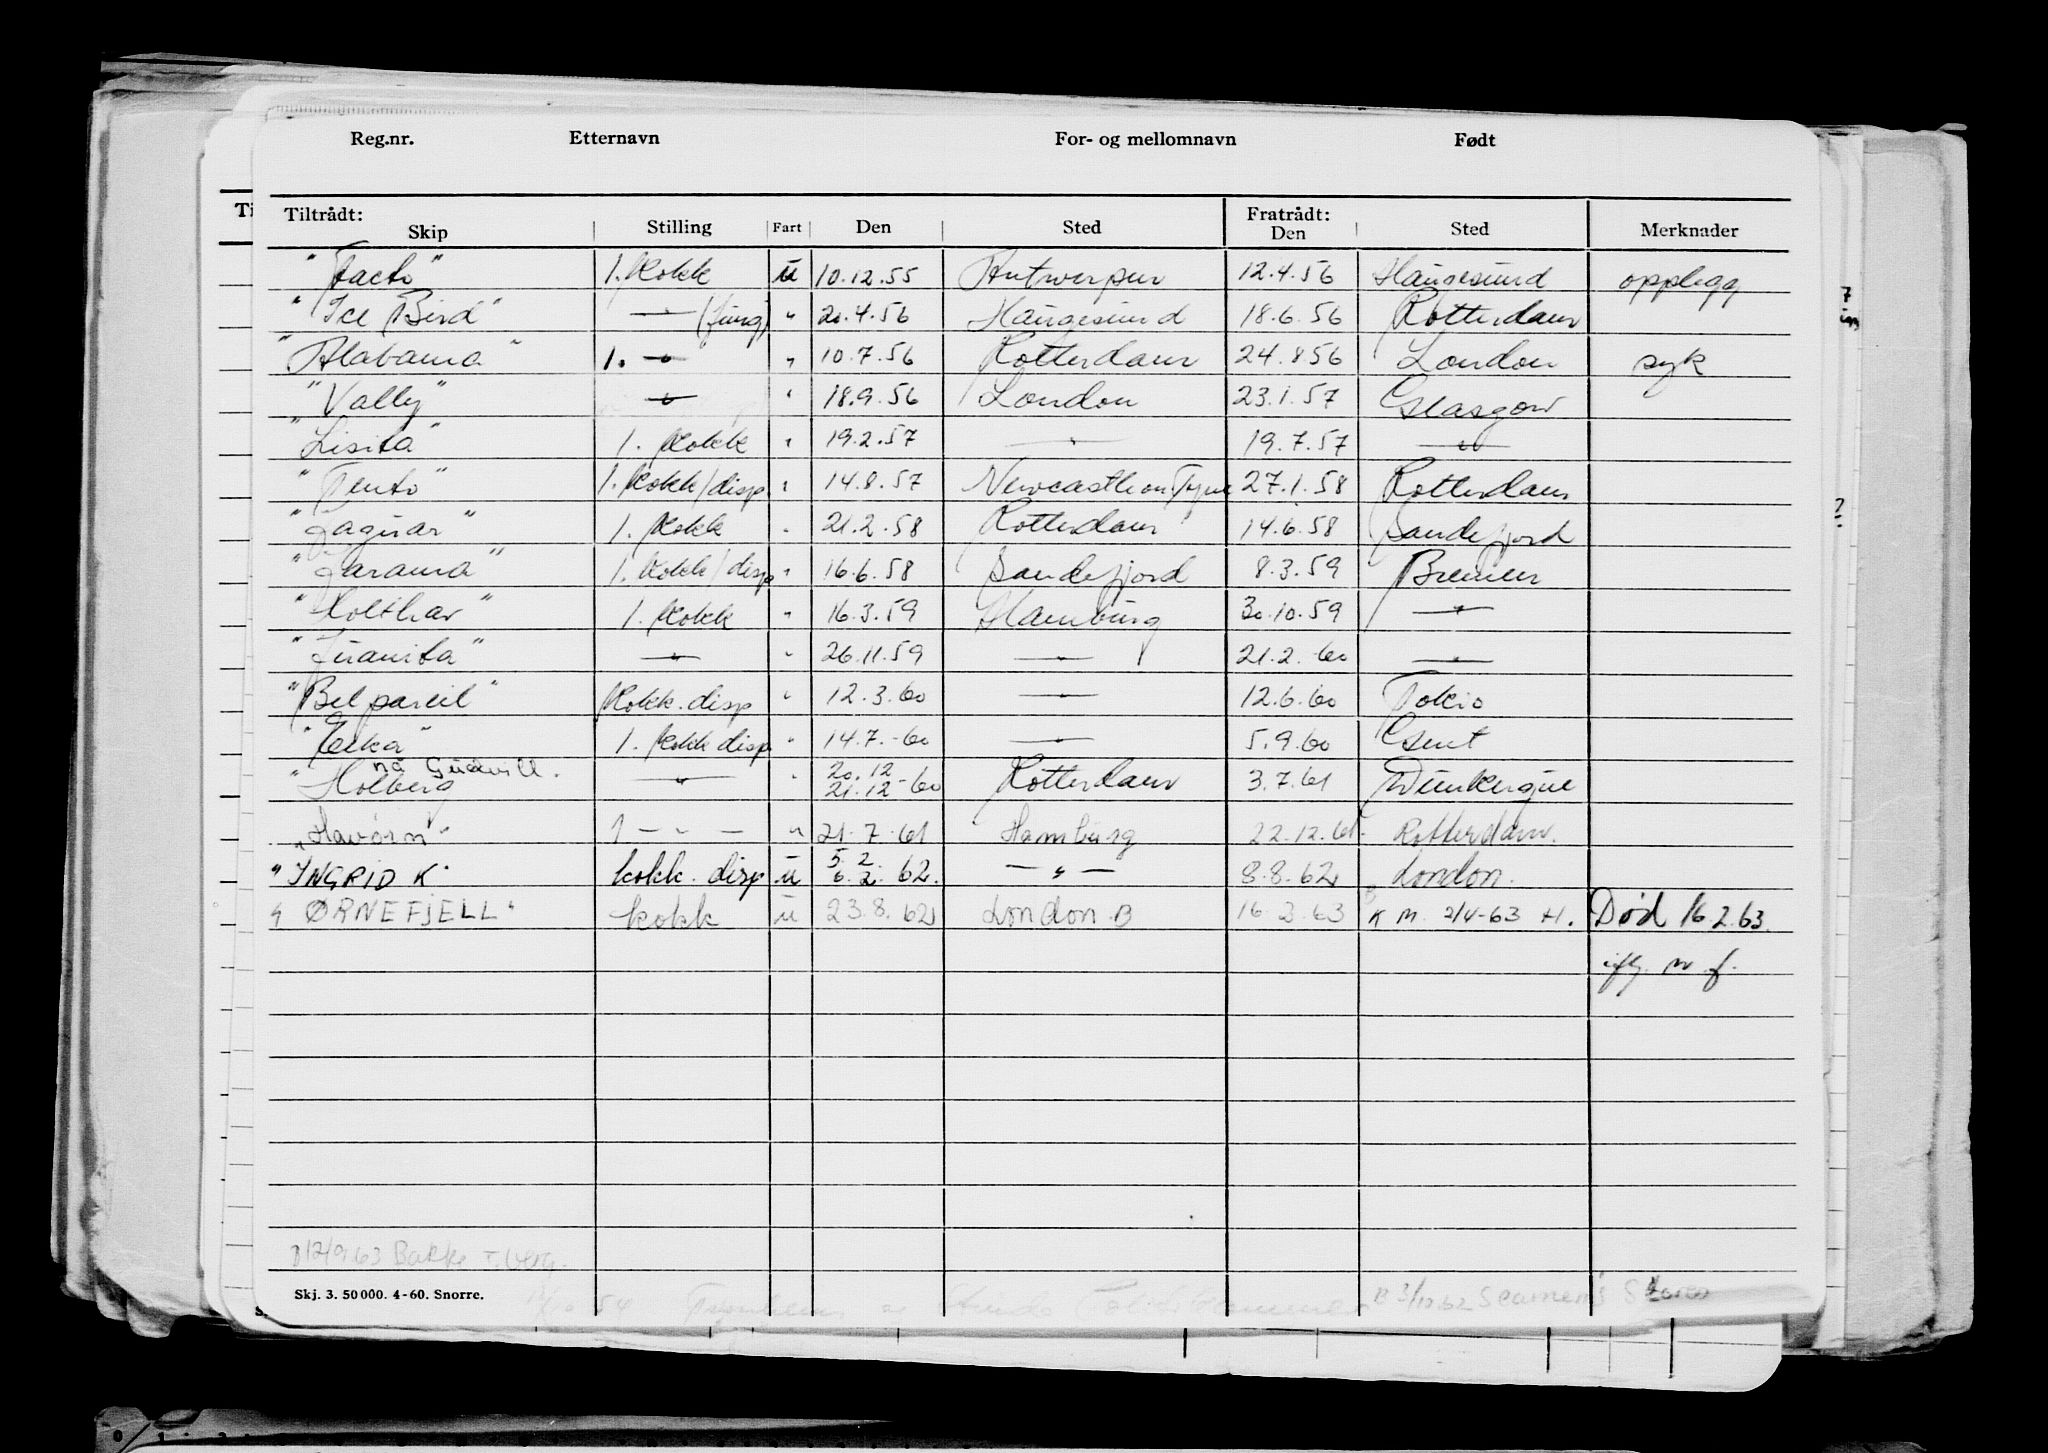 Reg.nr. Etternavn For- og mellomnavn Født
Tiltrådt: Fratrådt:
Skip Stilling Fart Den Sted Den Sted Merknader
"Facto" 1. Kokk u 10.12.55 Antwerpen 12.4.56 Haugesund opplegg
"Ice Bird" — " — (fung) " 20.4.56 Haugesund 18.6.56 Rotterdam
"Alabama" 1. — " — " 10.7.56 Rotterdam 24.8 56 London syk
"Vally" — " — " 18.9.56 London 23.1.57 Glasgow
"Lisita" 1. Kokk " 19.2.57 — " — 19.7.57 — " —
"Tento" 1. Kokk/disp. " 14.8.57 Newcastle on Tyne 27.1.58 Rotterdam
"Jaguar" 1. Kokk " 21.2.58 Rotterdam 14.6.58 Sandefjord
"Jarama" 1. Kokk/disp " 16.6.58 Sandefjord 8.3.59 Bremen
"Holthav" 1. Kokk " 16.3.59 Hamburg 30.10.59 — " —
"Juanita" — " — " 26.11.59 — " — 21.2.-60 — " —
"Belpareil" Kokk.disp " 12.3.60 — " — 12.6.60 Tokio
"Erka" 1. Kokk disp " 14.7.-60 — " — 5.9.60 Gent
nå Gudvill. 20.12
"Holberg — " — " 21.12-60 Rotterdam 3.7.61 Dunkerque
"Havørn" 1 — " — " 21.7.61 Hamburg 22.12.61. Rotterdam.
5.2.
"INGRID K" kokk. disp u 6.2.62. — " — 8.8.62 London.
"ØRNEFJELL" kokk u 23.8.62 London B 16.2.63 K M. 2/4-63 H. Død 16.2.63.
iflg. m.f.
B 12/9.63 Bakke
Skj. 3. 50 000. 4 - 60. Snorre. B 3/10.62 Seamen's Stores